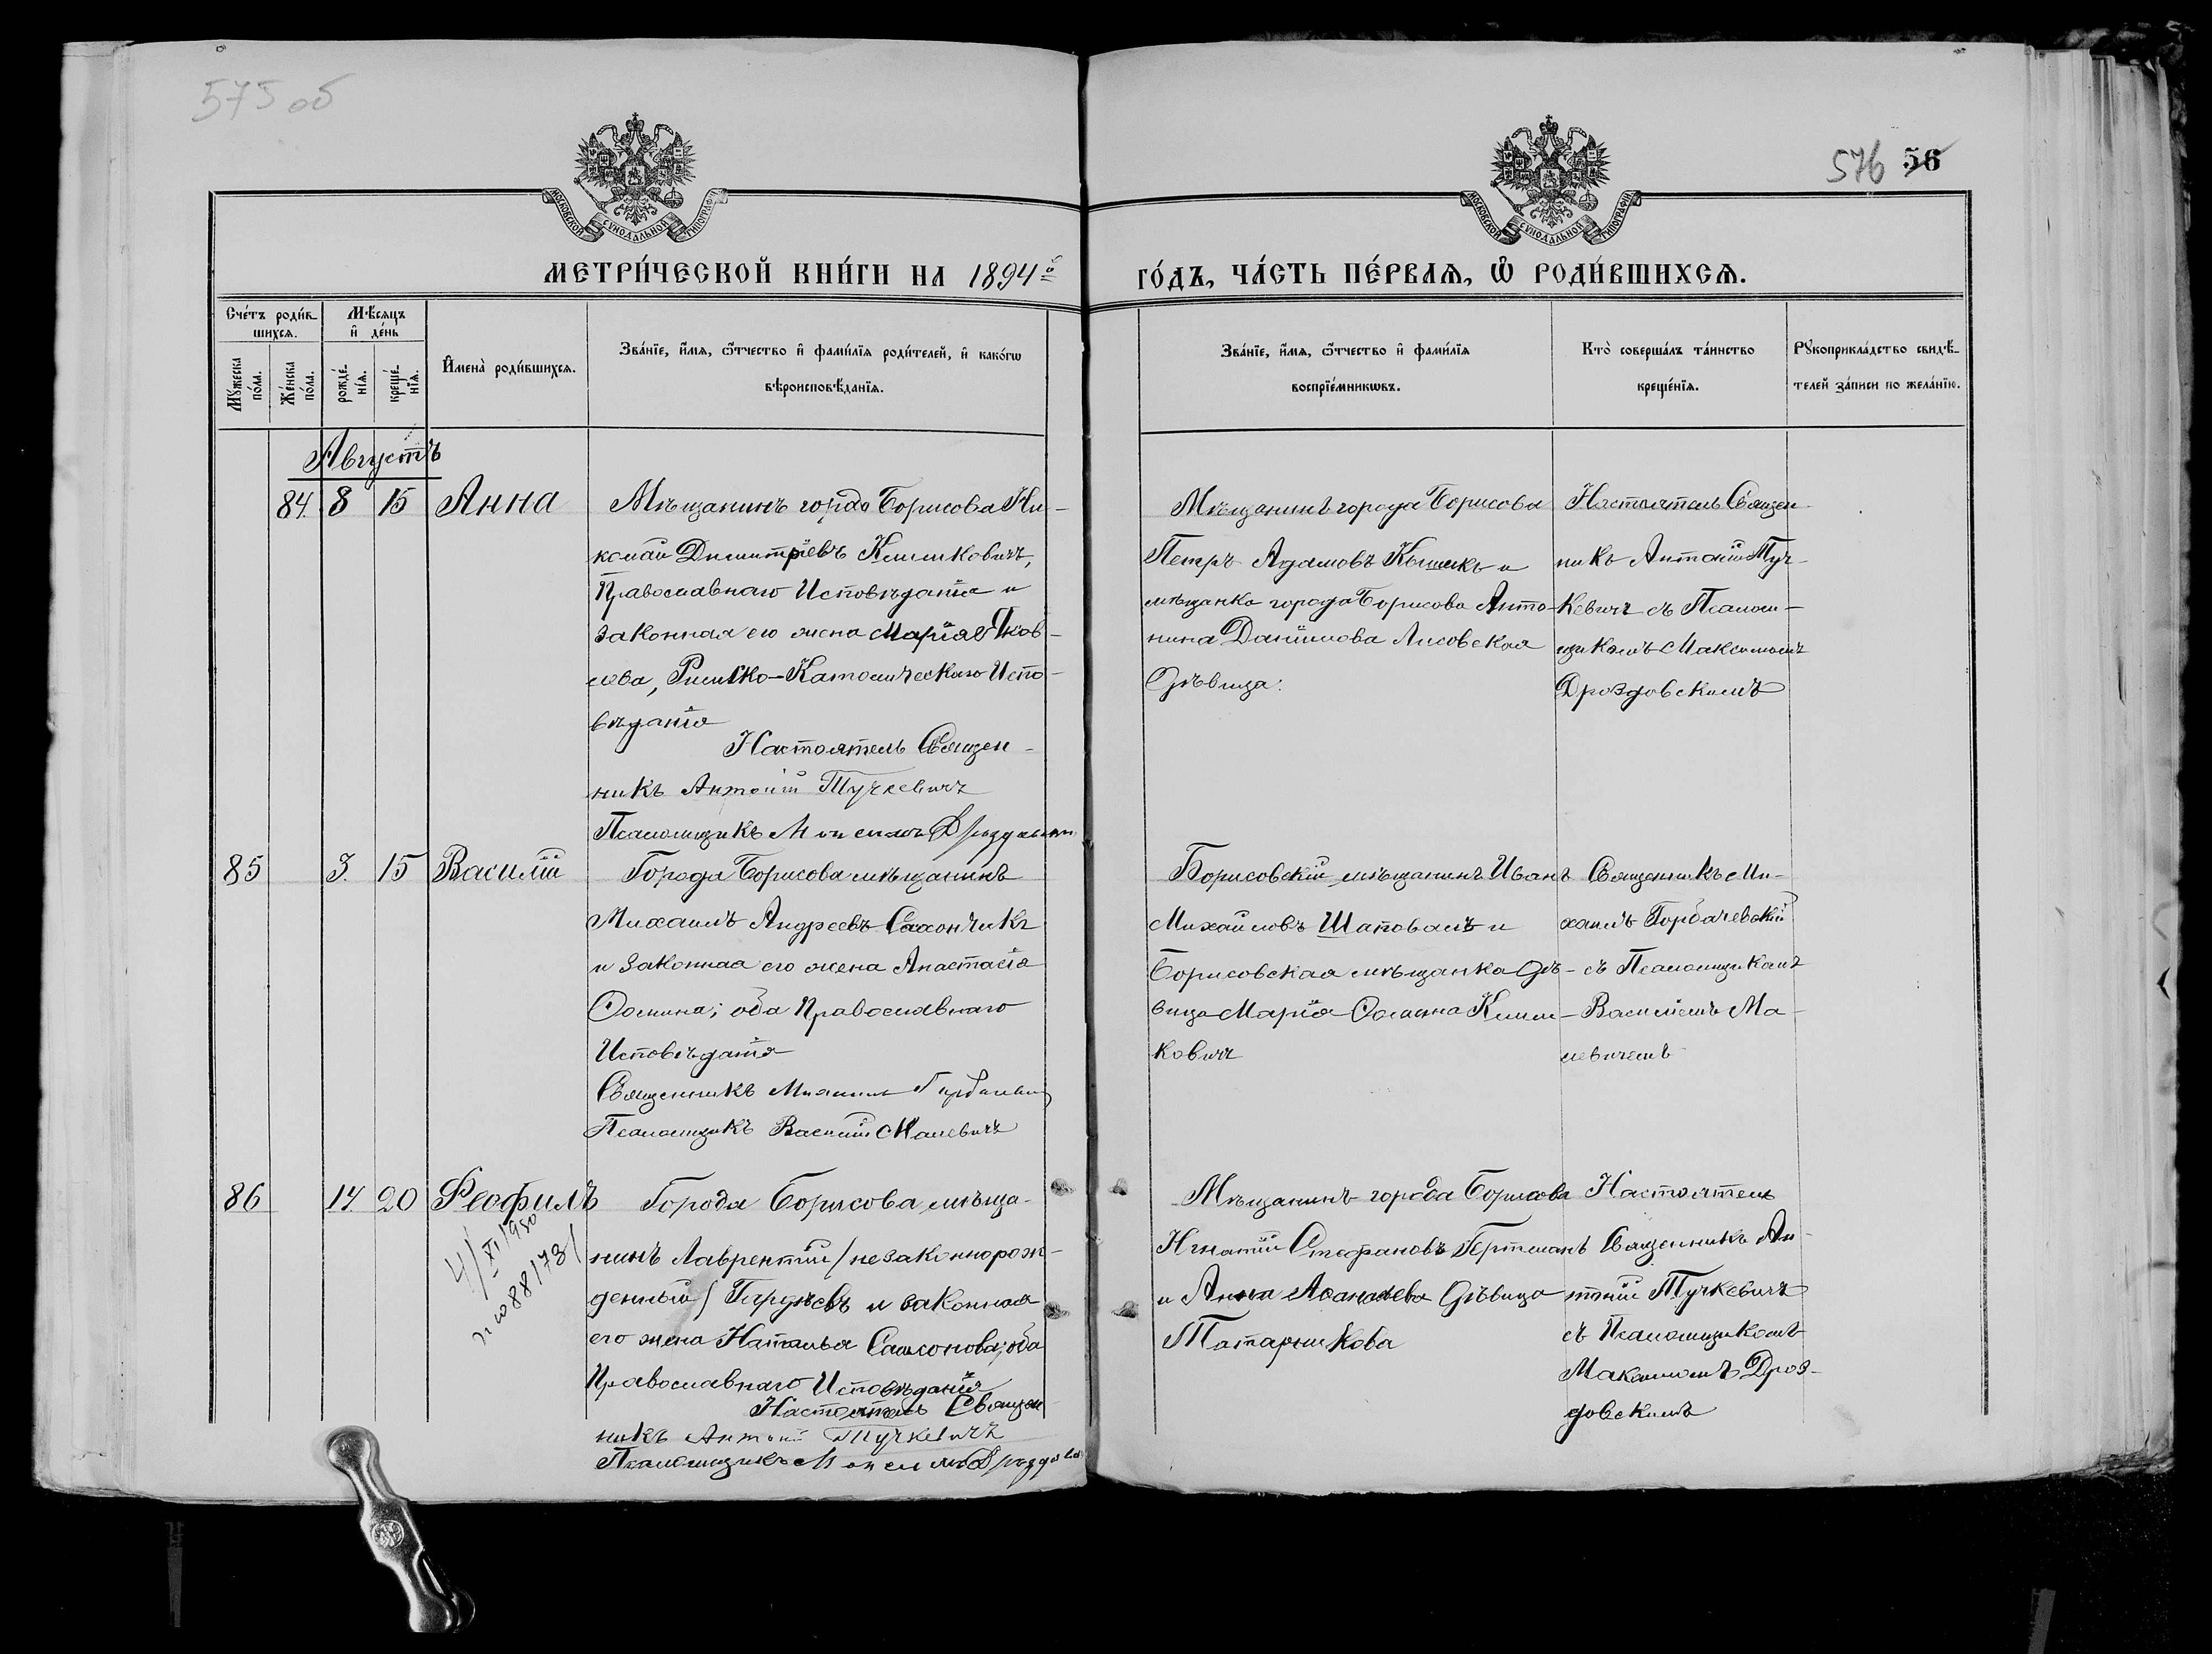 575 об
576 56
МОСКОВСКОЙ СѴНОДАЛЬНОЙ ТИПОГРАФІИ
МОСКОВСКОЙ СѴНОДАЛЬНОЙ ТИПОГРАФІИ
МЕТРИ́ЧЕСКОЙ КНИ́ГИ НА 1894й
ГО́ДЪ, ЧА́СТЬ ПЕ́РВАѦ, Ѽ РОДИ́ВШИХСѦ.
Сче́тъ роди́в-
шихсѧ.
Мꙋ́жеска по́ла.
Же́нска по́ла.
Мѣ́сѧцъ
и҆ де́нь
рожде́-нїѧ.
креще́-нїѧ.
И҆мена̀ роди́вшихсѧ.
Зва́нїе, и҆́мѧ, ѻ҆́тчество и҆ фами́лїѧ роди́телей, и҆ како́гѡ
вѣроисповѣ́данїѧ.
Зва́нїе, и҆́мѧ, ѻ҆́тчество и҆ фами́лїѧ
воспрїе́мникѡвъ.
Кто̀ соверша́лъ та́инство
креще́нїѧ.
Рꙋкоприкла́дство свидѣ́-
телей за́писи по жела́нїю.
Августъ
84. 8 15 Анна
Мѣщанинъ города Борисова Ни-
колай Димитріевъ Климковичъ,
Православнаго Исповѣданія и
законная его жена Марія Яков-
лева, Римско-Католическаго Испо-
вѣданія
Настоятель Священ-
никъ Антоній Тучкевичъ
Псаломщикъ Максимъ Дроздовскій
Мѣщанинъ города Борисова
Петръ Адамовъ и
мѣщанка города Борисова Анто-
нина Даніилова Лисовская
Дѣвица.
Настоятель Священ-
никъ Антоній Туч-
кевичъ съ Псалом-
щикомъ Максимомъ
Дроздовскимъ
85 3. 15 Василій
Города Борисова мѣщанинъ
Михаилъ Андреевъ Сахончикъ
и законная его жена Анастасія
Ѳомина; оба Православнаго
Исповѣданія
Священникъ Михаилъ Горбачевскій
Псаломщикъ Василій Малевичъ
Борисовскій мѣщанинъ Иванъ
Михайловъ Шаповалъ и
Борисовская мѣщанка Дѣ-
вица Марія Ѳомина Клим-
ковичъ
Священникъ Ми-
хаилъ Горбачевскій
съ Псаломщикомъ
Василіемъ Ма-
левичемъ
86 14. 20 Ѳеофилъ
4/XI/950
881731
Города Борисова мѣща-
нинъ Лаврентій /незаконнорож-
денный/ и законная
его жена Наталья Самсонова; оба
Православнаго Исповѣданія
Настоятель Священ
никъ Антоній Тучкевичъ
Псаломщикъ Максимъ Дроздовскій
Мѣщанинъ города Борисова
Игнатій Стефановъ Гертманъ
и Анна Аѳанасьева Дѣвица
Татарникова
Настоятель
Священникъ Ан-
тоній Тучкевичъ
съ Псаломщикомъ
Максимомъ Дроз-
довскимъ